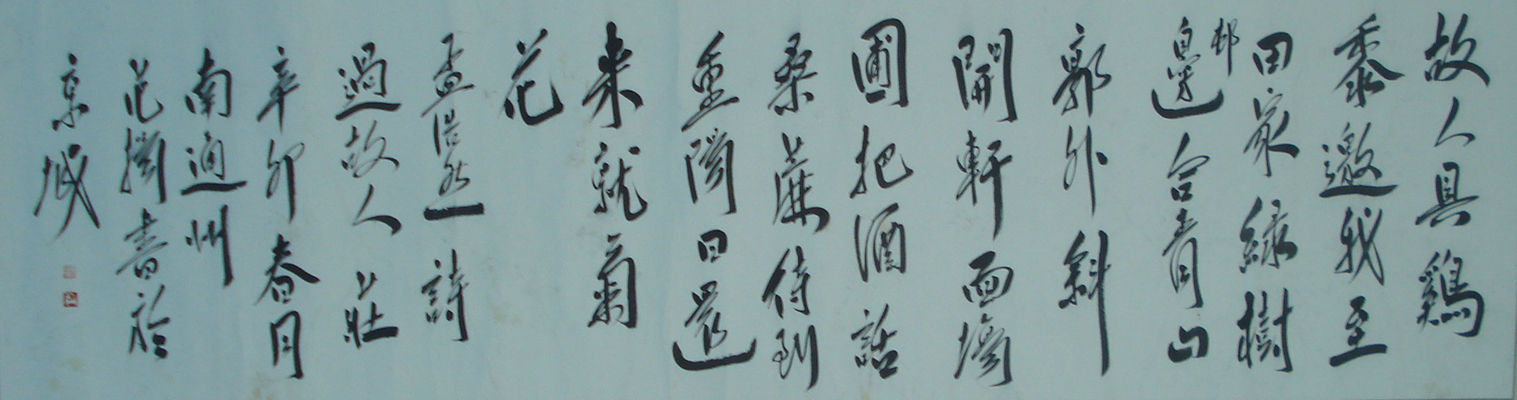 故人具鷄
黍邀我至
田家綠樹
邨邊合青山
郭外斜
開軒面場
圃把酒話
桑麻待到
重陽日還
來就菊
花
孟浩然詩
過故人莊
辛卯春月
南通州
范揚書於
京城